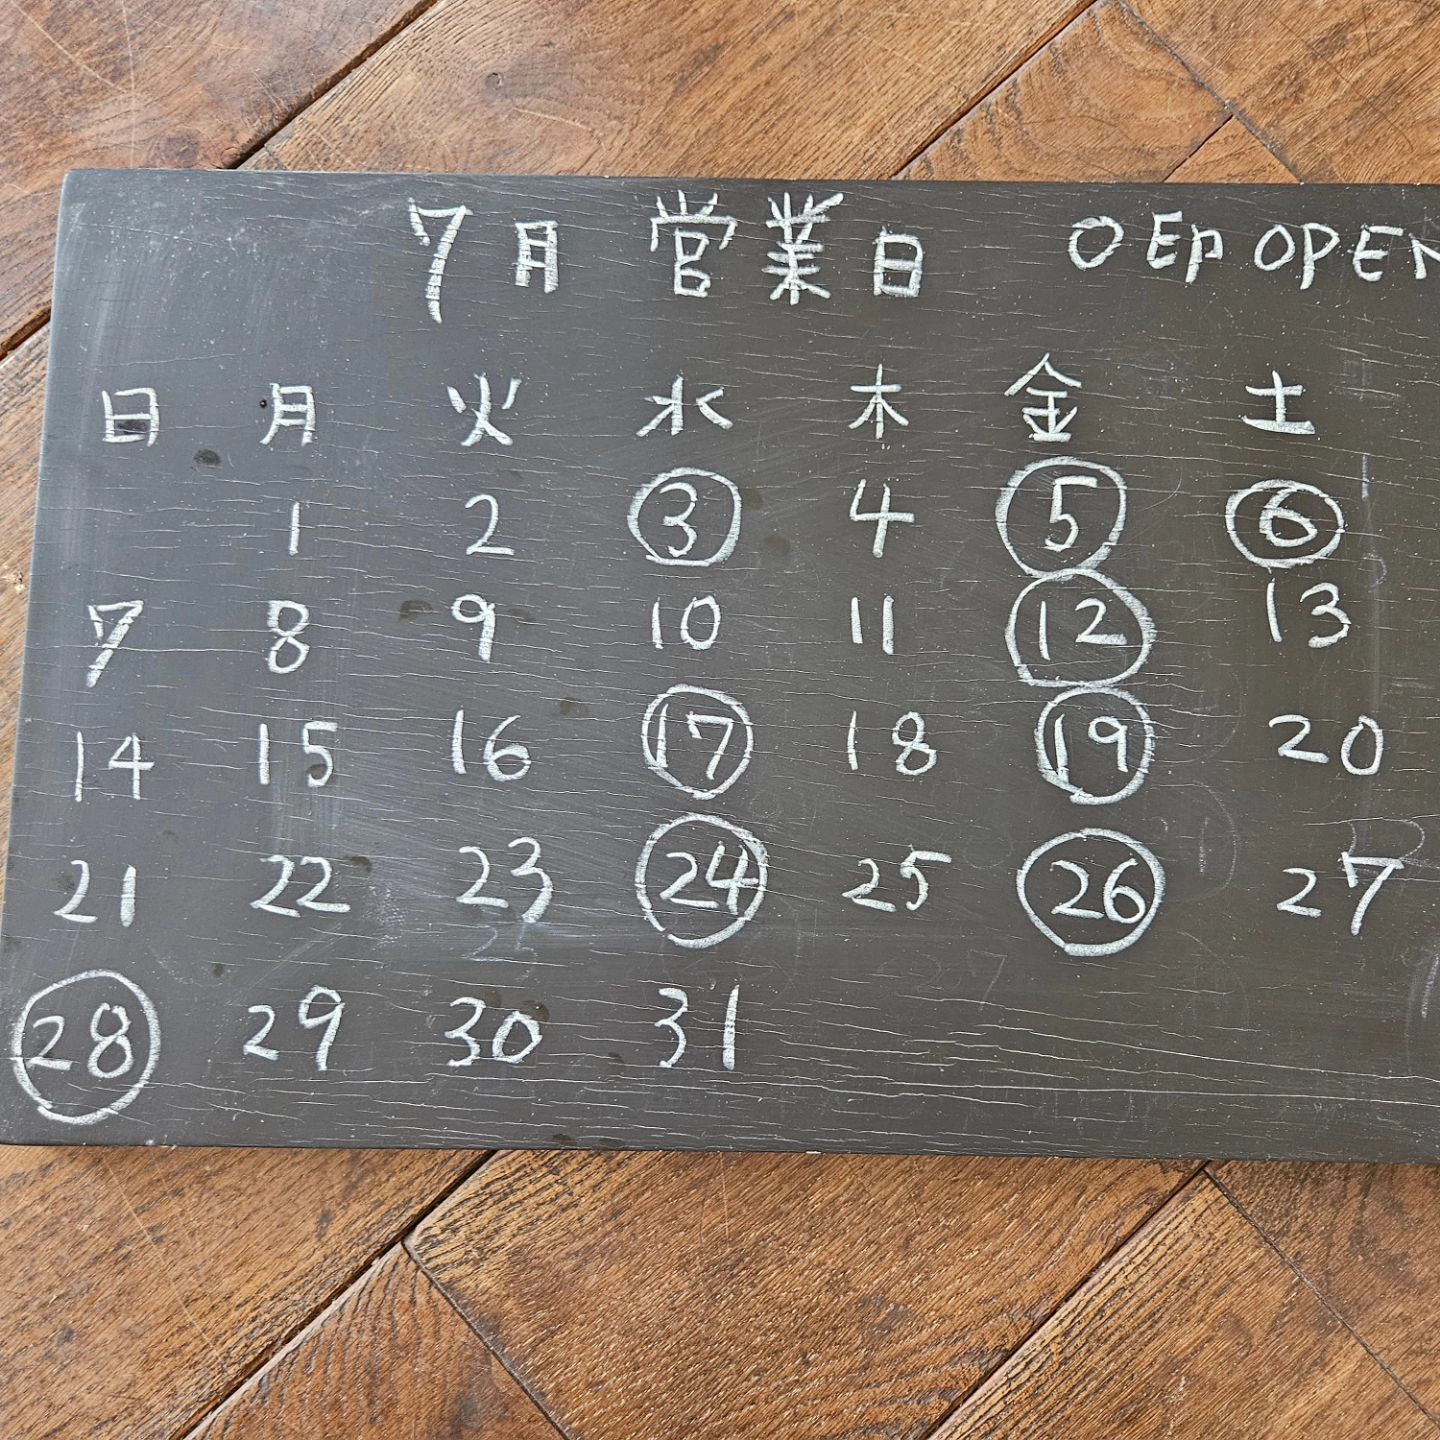 7月 営業日 〇印 OPEN
日 月 火 水 木 金 土
1 2 3 4 5 6
7 8 9 10 11 12 13
14 15 16 17 18 19 20
21 22 23 24 25 26 27
28 29 30 31